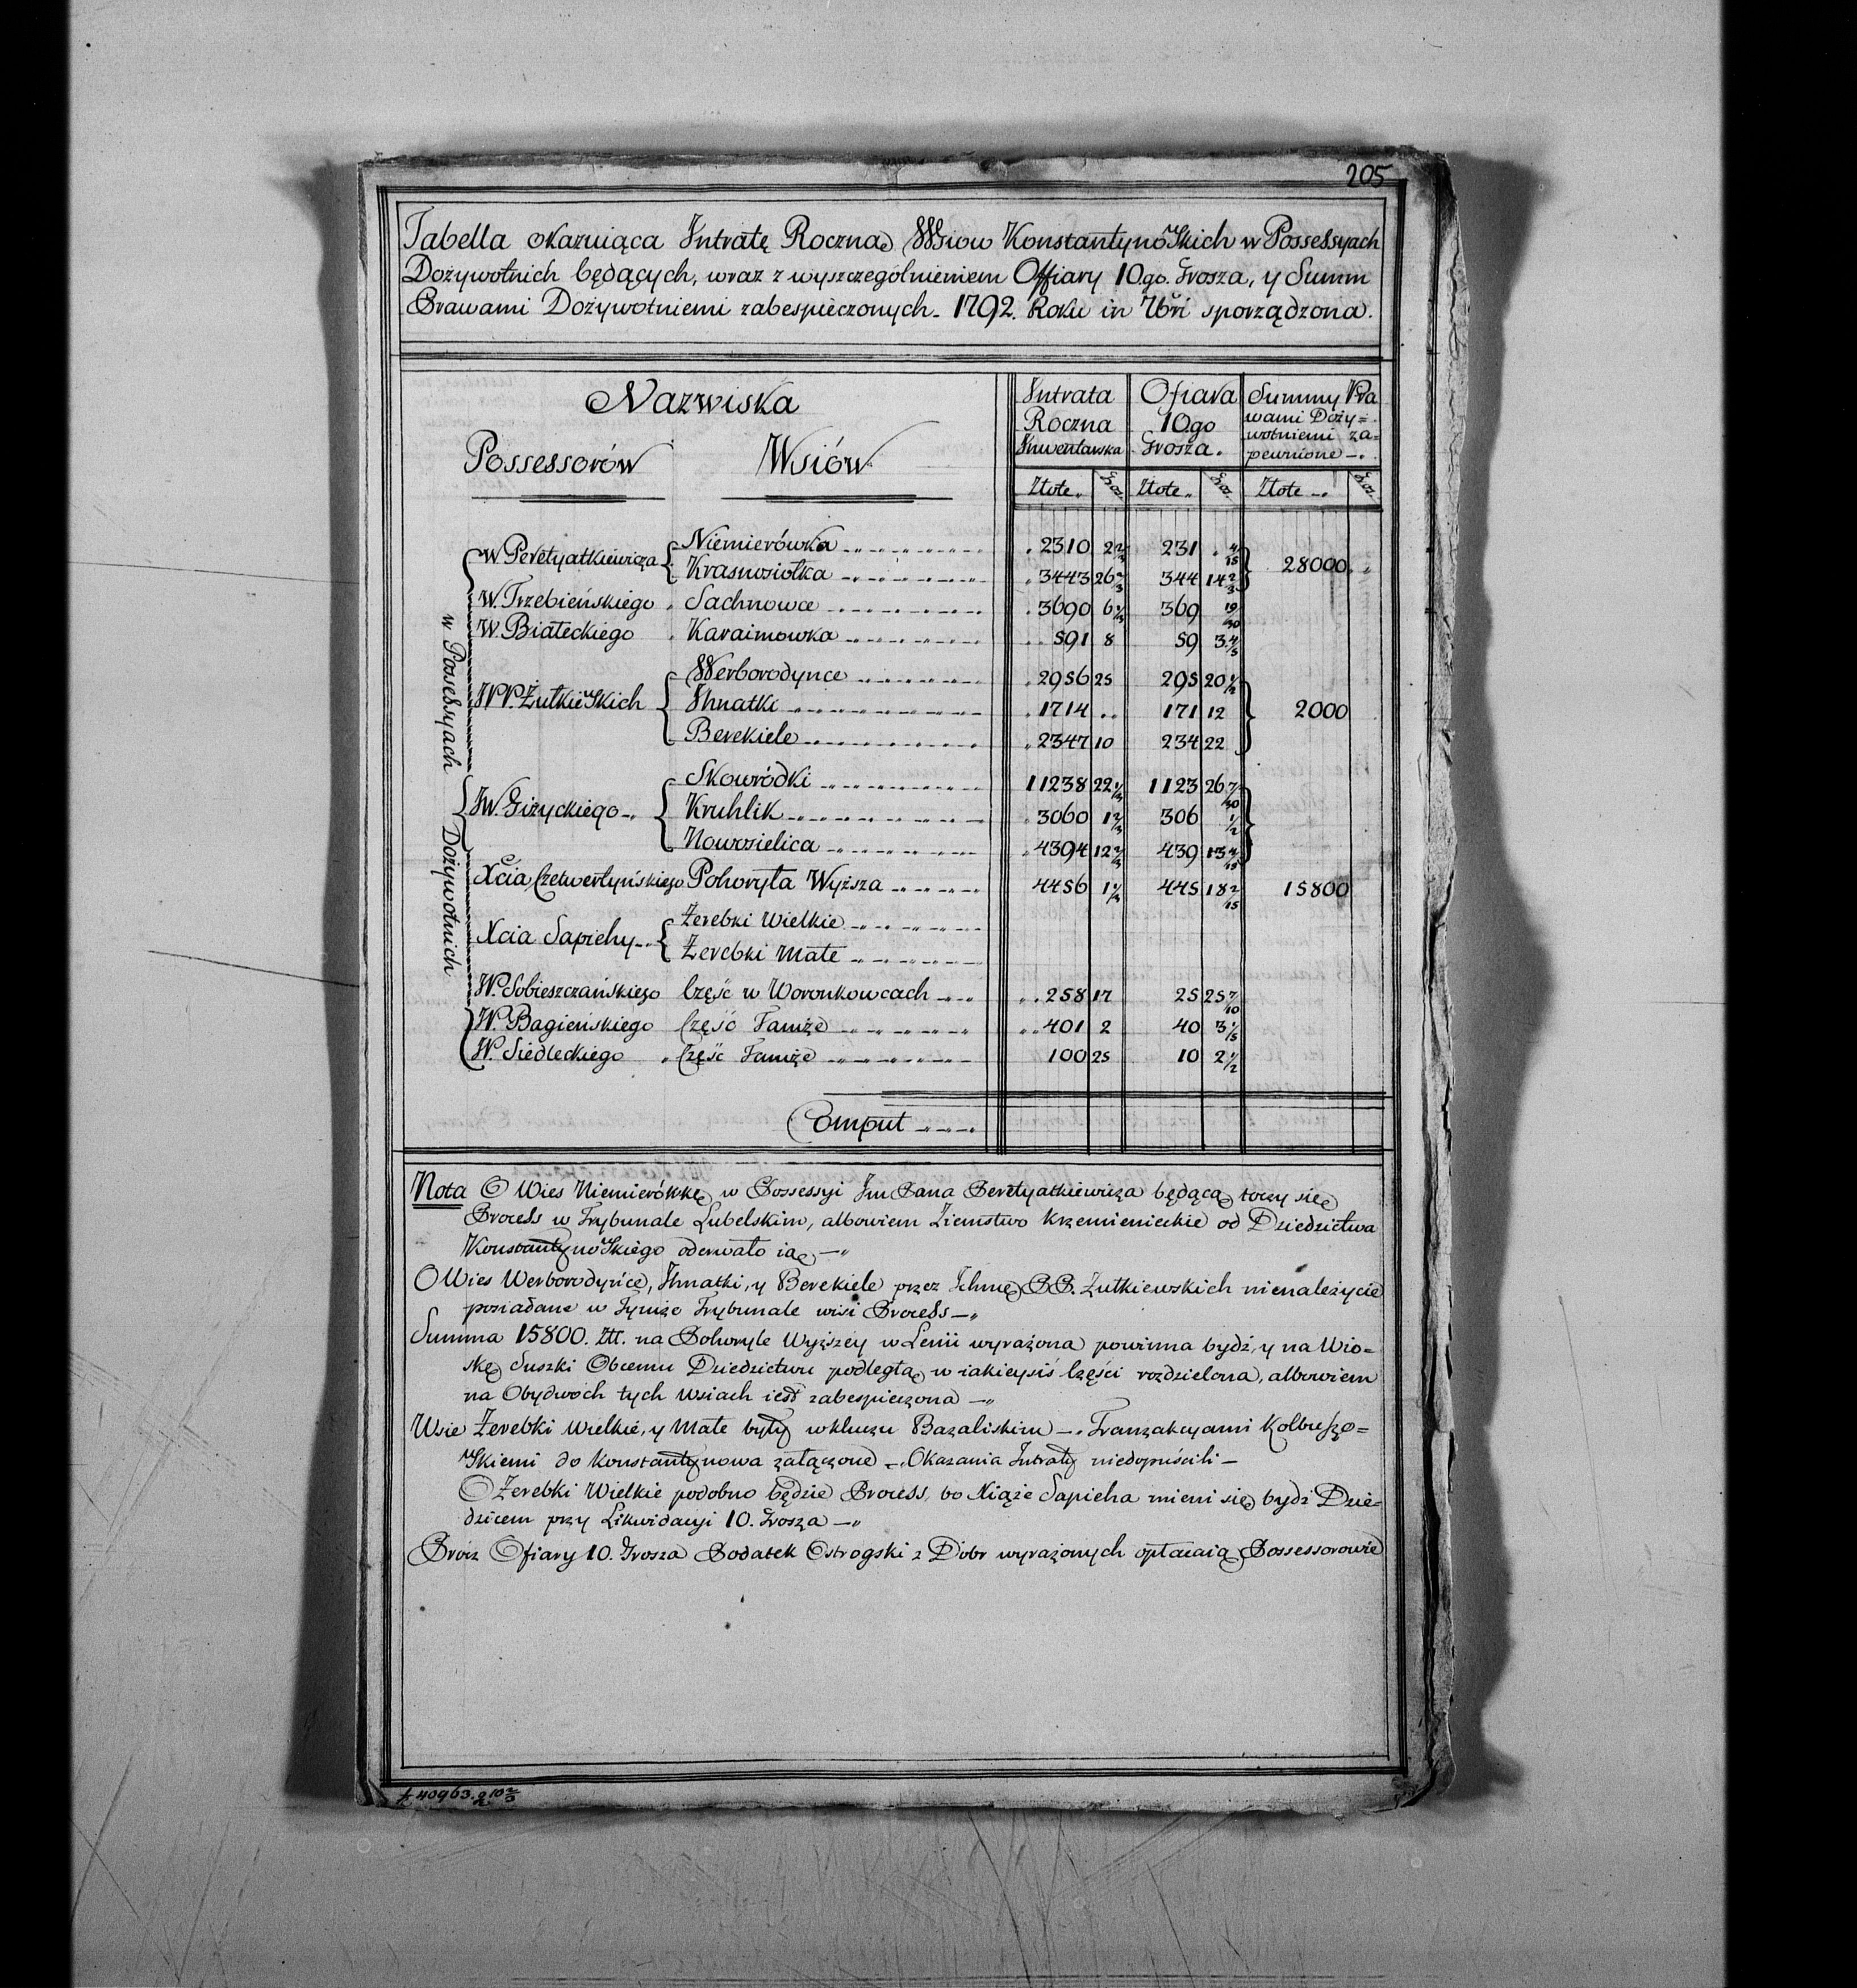 205
Tabella okazuiąca Intratę Roczną Wsiow Konstantynowskich w Possessyach
Dożywotnich będących, wraz z wyszczegulnieniem Offiary 10go. Grosza, y Summ
Prawami Dożywotniemi zabespieczonych. 1792. Roku in 7bri sporządzona.
Nazwiska
Possessorów Wsiów
Intrata Roczna Inwentarska
Ofiara 10go Grosza.
Summy Pra
wami Doży=
wotniemi za=
pewnione
Złote Gro. Złote Gro. Złote Gro.
w Possessyach Dożywotnich
W Peretyatkiewicza Niemierówka 2310 2 2/3 231 4/15 28000
Krasnosiołka 3443 26 2/3 344 14 2/3
W. Trzebieńskiego Sachnowce 3690 6 1/3 369 19/30
W. Białeckiego Karaimowka 591 8 59 3 4/5
WP. Żułkiewskich Werborodynce 2956 25 295 20 1/2 2000
Ihnatki 1714 171 12
Berekiele 2347 10 234 22
JW. Giżyckiego Skowródki 11238 22 1/3 1123 26 7/30
Kruhlik 3060 1 2/3 306 1/2
Nowosielica 4394 12 2/3 439 13 4/15
Xcia Czetwertyńskiego Pohoryła Wyższa 4456 1 1/3 445 18 2/15 15800
Xcia Sapiehy Żerebki Wielkie
Żerebki Małe
W. Sobieszczańskiego Część w Woronkowcach 258 17 25 25 7/10
W. Bagieńskiego Część Tamże 401 2 40 3 1/5
W. Siedleckiego Część Tamże 100 25 10 2 1/2
Comput
Nota O Wies Niemierówkę w Possessyi Jm Pana Peretyatkiewicza będącą toczy się
Process w Trybunale Lubelskim, albowiem Ziemstwo Krzemienieckie od Dziedzictwa
Konstantynowskiego oderwało ią
O Wies Werborodyńce, Ihnatki, y Berekiele przez Ichmę PP. Żułkiewskich nienależycie
posiadane w Tymże Trybunale wisi Process
Summa 15800. Złł. na Pohoryle Wyższey w Lenii wyrażona powinna bydź y na Wio=
skę Suszki Obcemu Dziedzictwu podległą w iakieysiś Części rozdzielona, albowiem
na Obydwóch tych Wsiach iest zabespieczona
Wsie Żerebki Wielkie, y Małe były w kluczu Bazaliskim Tranzakcyami Kolbuszo=
wskiemi do Konstantynowa załączone Okazania Intraty niedopuścili
O Żerebki Wielkie podobno będzie Process, bo Xiąże Sapieha mieni się bydź Dzie=
dzicem przy Likwidacyi 10. Grosza
Procz Ofiary 10. Grosza Podatek Ostrogski z Dobr wyrażonych opłacaią Possessorowie